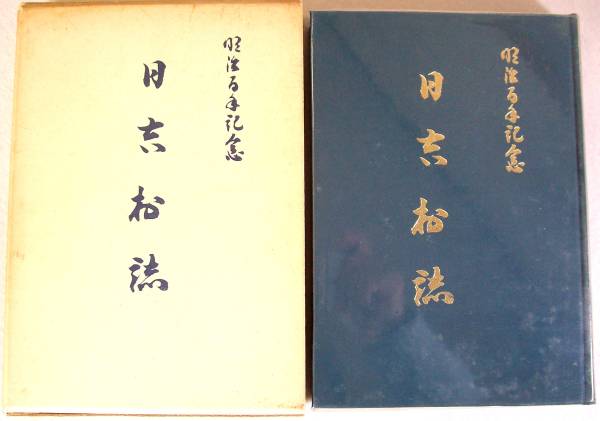 明治百年記念
日吉村誌
明治百年記念
日吉村誌